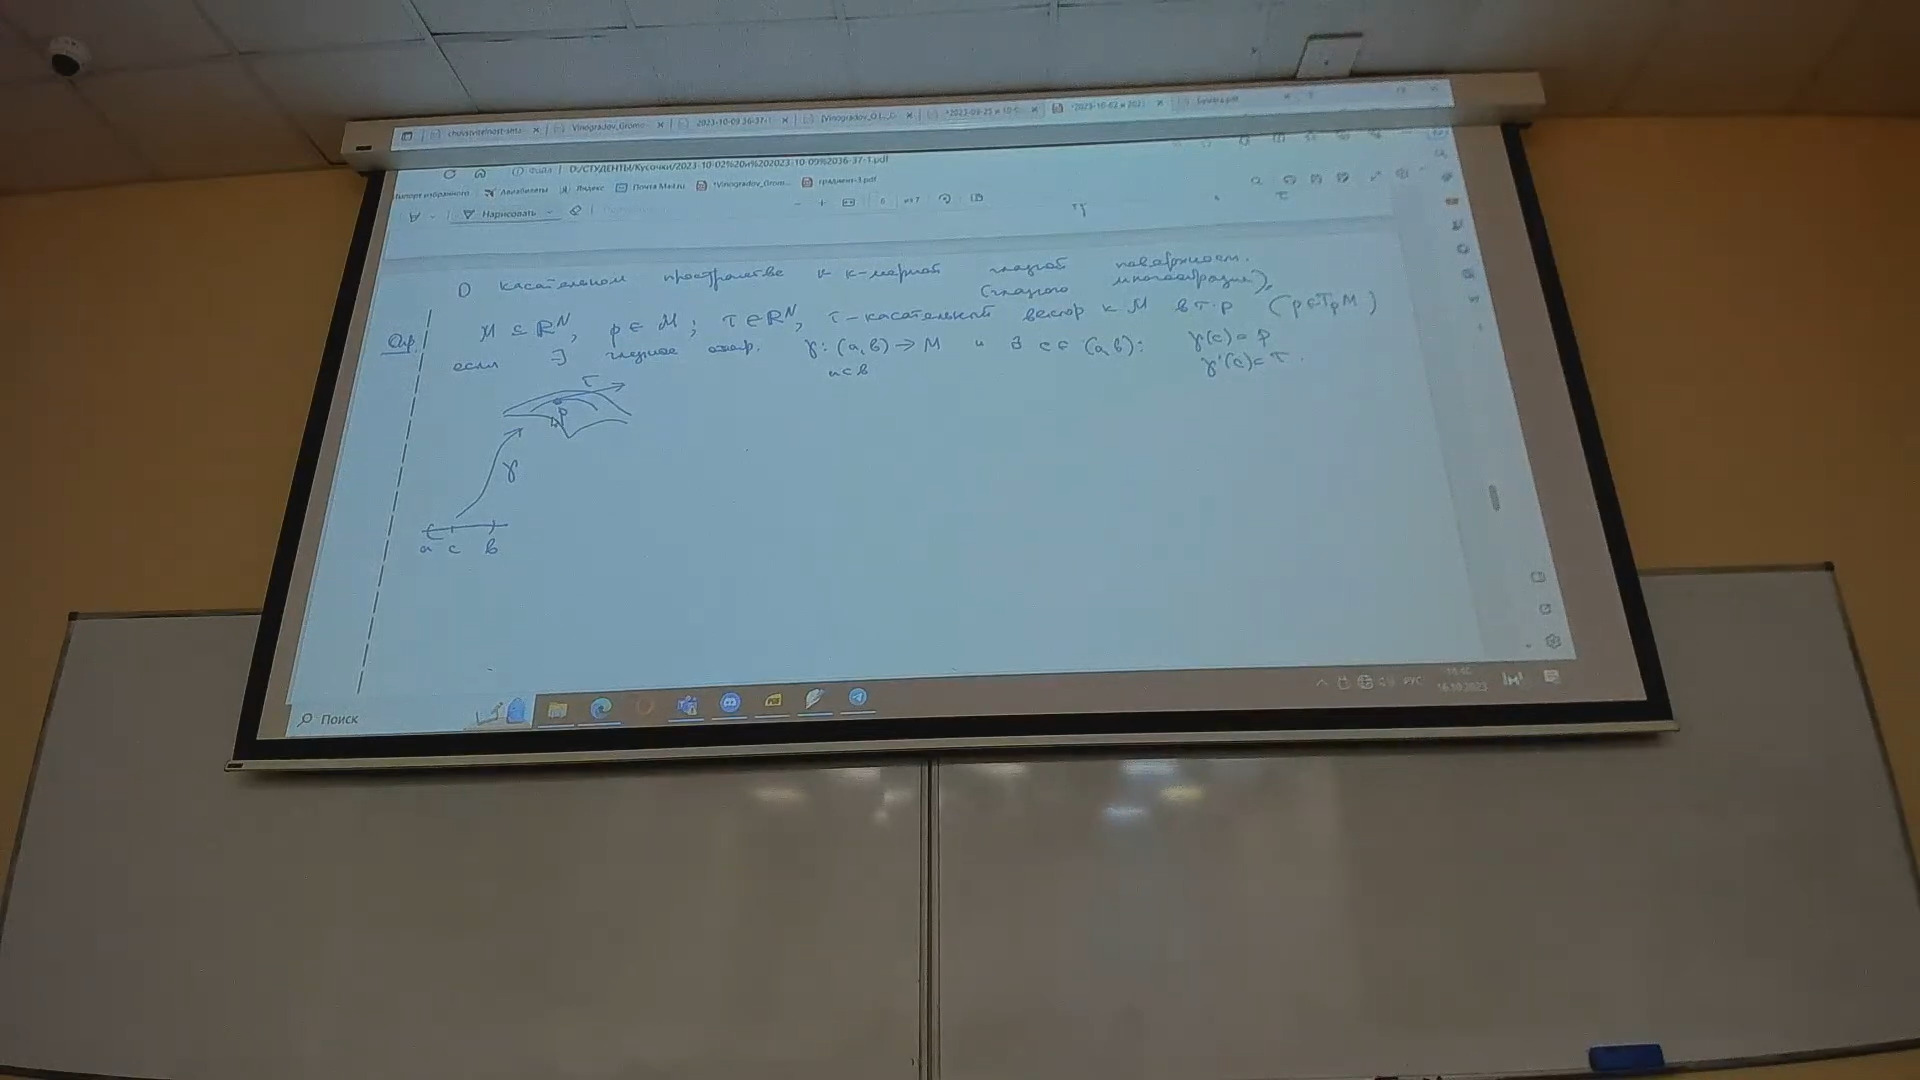 Vinogradov_Gromo
2023-10-09 36-37-1
Файл D:/СТУДЕНТЫ/Кусочки/2023-10-02%20и%202023-10-09%2036-37-1.pdf
Импорт избранного Авиабилеты Яндекс Почта Mail.ru *Vinogradov_Grom... градиент-3.pdf
Нарисовать 6 из 7
О касательном пространстве к k-мерной гладкой поверхност.
(гладкого многообразия).
Опр. M ⊆ ℝᴺ, p ∈ M; τ ∈ ℝᴺ, τ-касательный вектор к M в т. p (p ∈ TₚM)
если ∃ гладкое отобр. γ: (a, b) → M и ∃ c ∈ (a, b): γ(c) = p
a < b γ'(c) = τ.
τ
p
γ
a c b
Поиск
РУС
16.10.2023